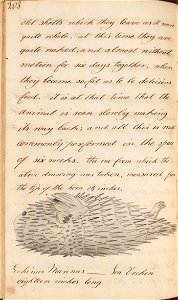 203
old shells which they leave as it were
quite whole. at this time they are
quite naked, and almost without
motion for six days together, when
they become so fat as to be delicious
food. it is at that time that the
animal is seen slowly making
its way back, and all this is most
commonly performed in the space
of six weeks. the one from which the
above drawing was taken, measured from
the tip of the horn 18 inches.
Echinus Marinus — Sea Urchin
eighteen inches long